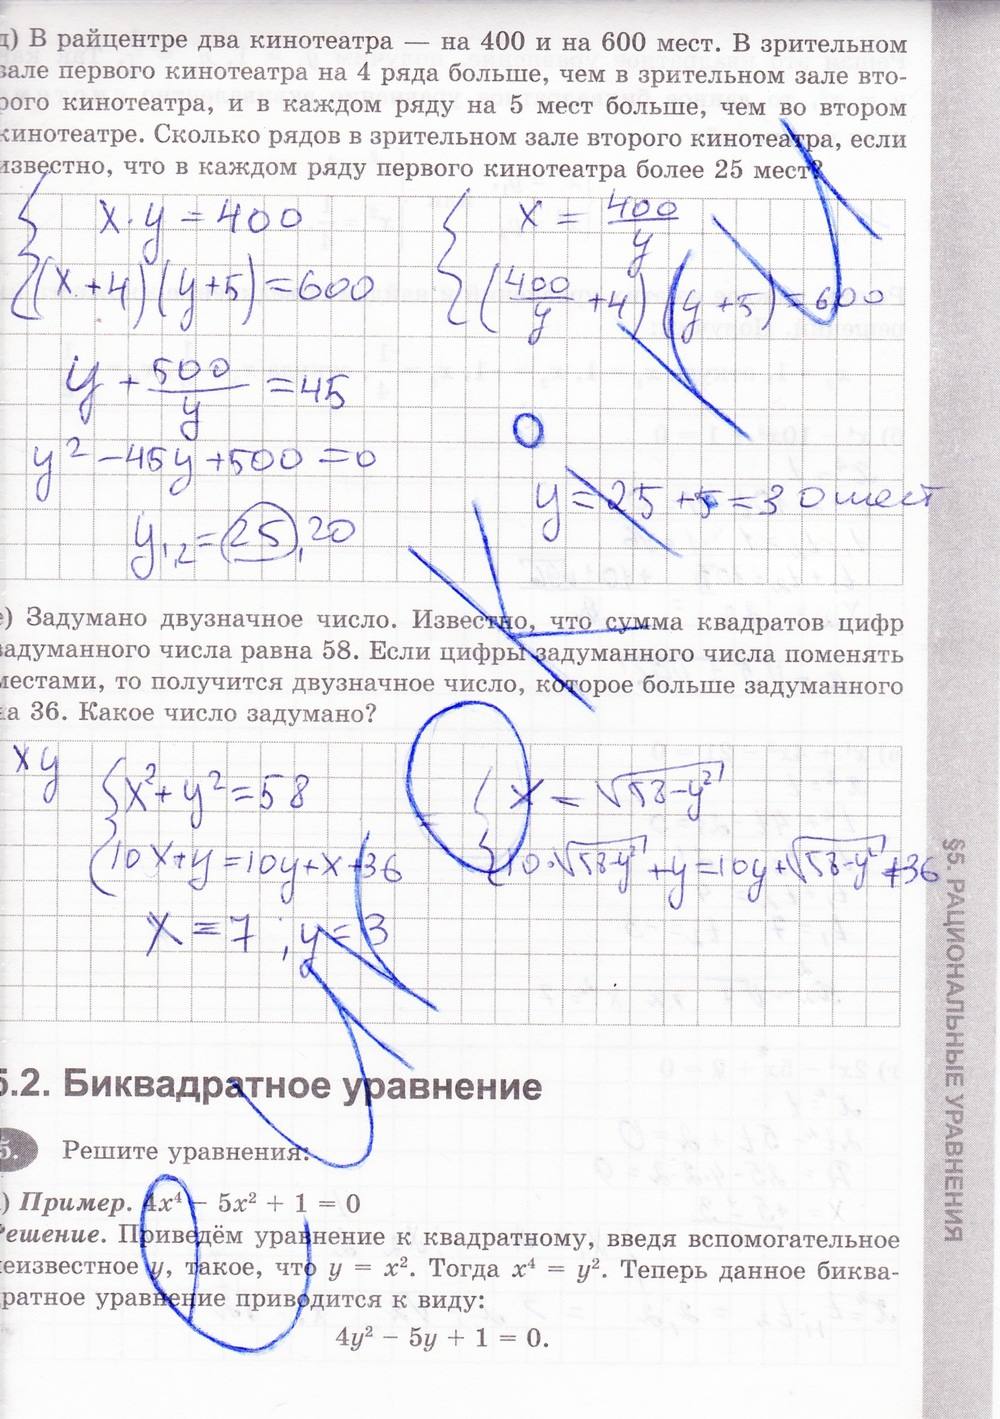 д) В райцентре два кинотеатра — на 400 и на 600 мест. В зрительном
зале первого кинотеатра на 4 ряда больше, чем в зрительном зале вто-
рого кинотеатра, и в каждом ряду на 5 мест больше, чем во втором
кинотеатре. Сколько рядов в зрительном зале второго кинотеатра, если
известно, что в каждом ряду первого кинотеатра более 25 мест?
x·y=400
(x+4)(y+5)=600
x = 400/y
(400/y +4)(y+5)=600
y + 500/y =45
y² -45y+500=0
y1,2=25,20
y=25+5=30 мест
е) Задумано двузначное число. Известно, что сумма квадратов цифр
задуманного числа равна 58. Если цифры задуманного числа поменять
местами, то получится двузначное число, которое больше задуманного
на 36. Какое число задумано?
xy
x²+y²=58
10x+y=10y+x+36
x = √58-y²
10·√58-y² +y=10y+√58-y² +36
x=7; y=3
5.2. Биквадратное уравнение
5. Решите уравнения:
) Пример. 4x⁴ – 5x² + 1 = 0
Решение. Приведём уравнение к квадратному, введя вспомогательное
неизвестное y, такое, что y = x². Тогда x⁴ = y². Теперь данное биква-
дратное уравнение приводится к виду:
4y² – 5y + 1 = 0.
§5. РАЦИОНАЛЬНЫЕ УРАВНЕНИЯ